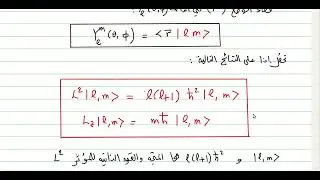 Yₗᵐ(θ,φ) = <r⃗ | l m>
نحصل اذا على النتائج التالية :
L² |l,m> = l(l+1) ħ² |l,m>
L_z |l,m> = mħ |l,m>
|l,m> و l(l+1)ħ² هما المتجه والقيمة الذاتية للمؤثر L²